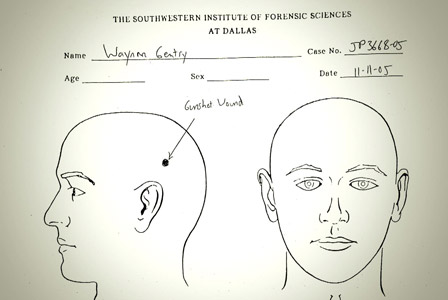 THE SOUTHWESTERN INSTITUTE OF FORENSIC SCIENCES
AT DALLAS
Name Waymon Gentry Case No. JP3668-05
Age Sex Date 11-11-05
Gunshot Wound